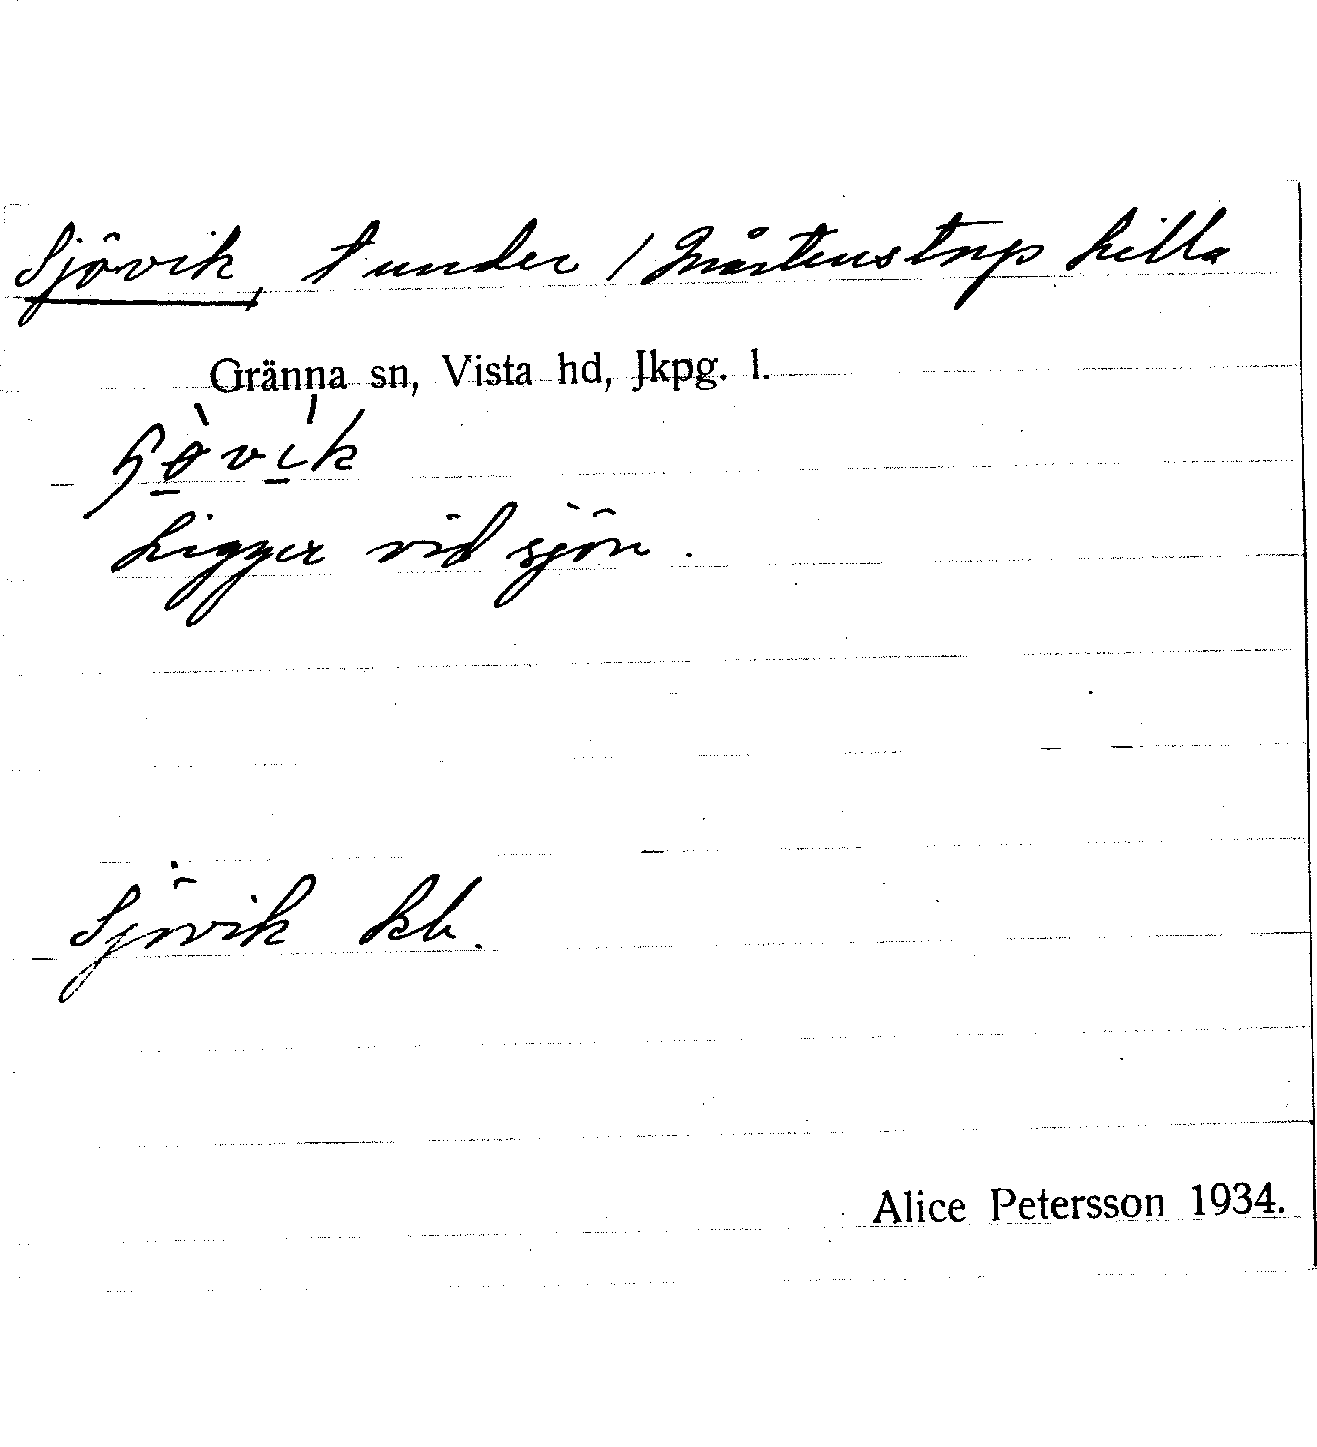 Sjövik, t under / Mårtenstorp lilla
Gränna sn, Vista hd, Jkpg. l.
Ligger vid sjön.
Sjövik kb.
Alice Petersson 1934.